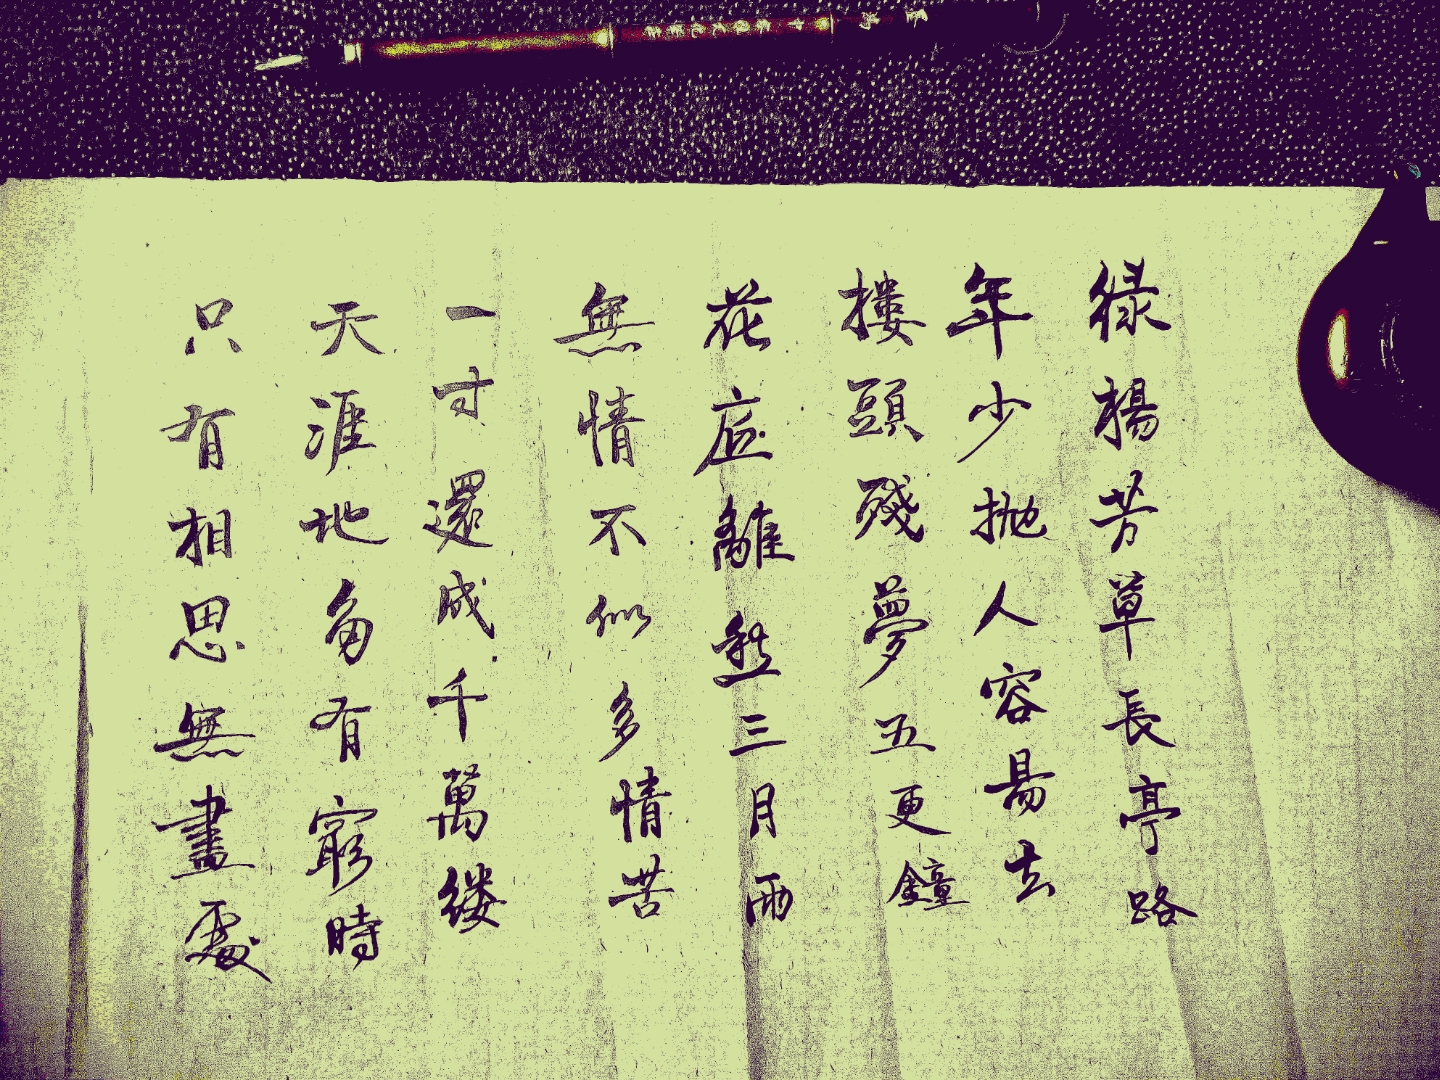 緑楊芳草長亭路
年少抛人容易去
樓頭殘夢五更鐘
花底離愁三月雨
無情不似多情苦
一寸還成千萬縷
天涯地角有窮時
只有相思無盡處